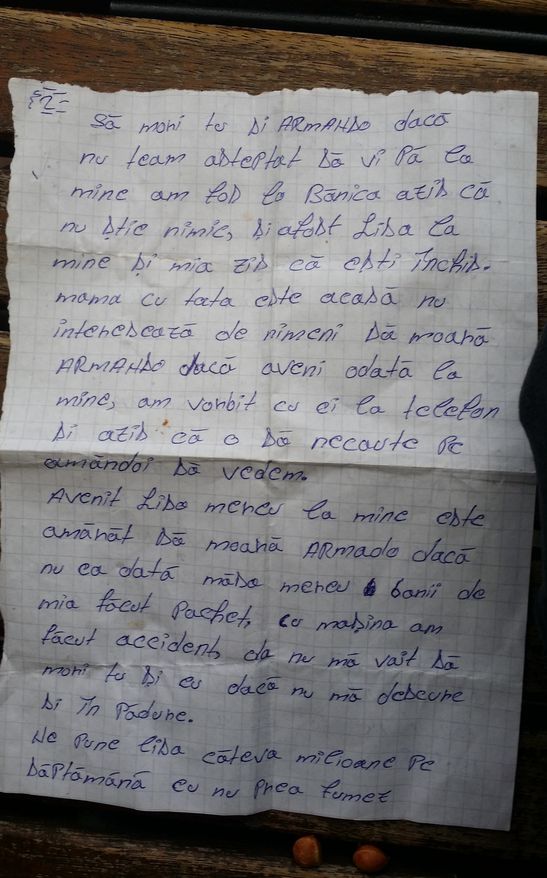 2
Să mori tu și ARMANDO dacă
nu team așteptat să vi Pă la
mine am fos la Bănica azis că
nu știe nimic, și afost Lisa la
mine și mia zis că ești închis.
mama cu tata este acasă nu
interesează de nimeni să moară
ARMANDO dacă aveni odată la
mine, am vorbit cu ei la telefon
și azis că o să necaute Pe
amândoi să vedem.
Avenit Lisa mereu la mine este
amărât să moară ARMado dacă
nu ca dată măsa mereu banii de
mia făcut Pachet, cu mașina am
făcut accident, da nu mă vait să
mori tu și eu dacă nu mă descure
și în Pădure.
Ne Pune lisa câteva milioane Pe
săptămână eu nu Prea fumez